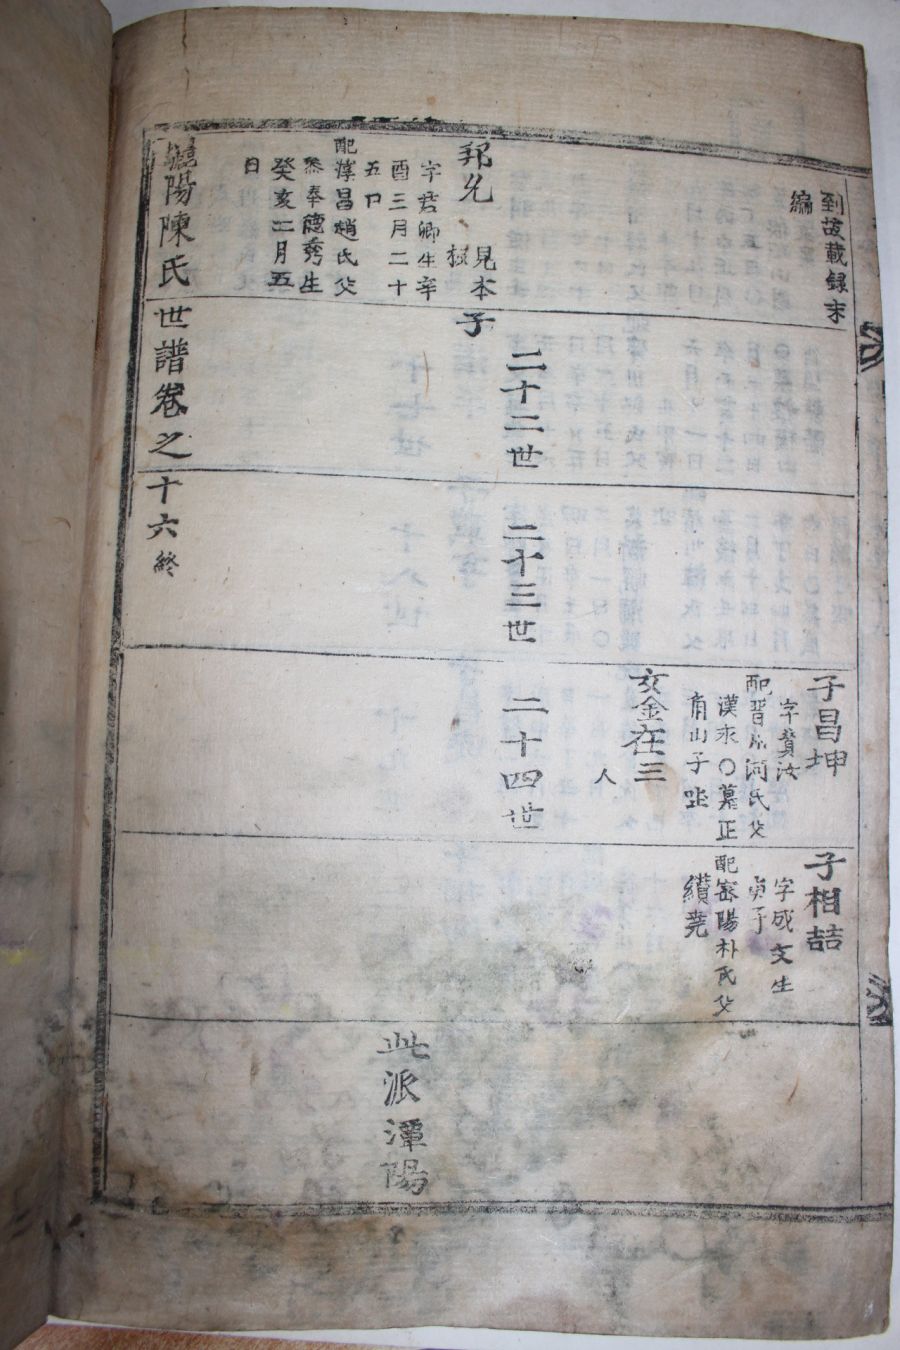 到故載録末
編
邦光 見本
子 揆
字君卿生辛
酉三月二十
五日
配淳昌趙氏父
叅奉德秀生
癸亥二月五
日
二十二世
二十三世
二十四世
子昌坤
字賛汝
配晋州河氏父
漢永〇墓正
角山子坐
女金在三
人
子相喆
字成文生
庚子
配密陽朴氏父
纘堯
此派潭陽
驪陽陳氏世譜卷之十六終